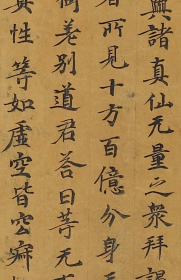 與諸真仙无量之衆拜謁
所見十方百億分身
差別道君荅曰等无
性等如虛空皆空寂